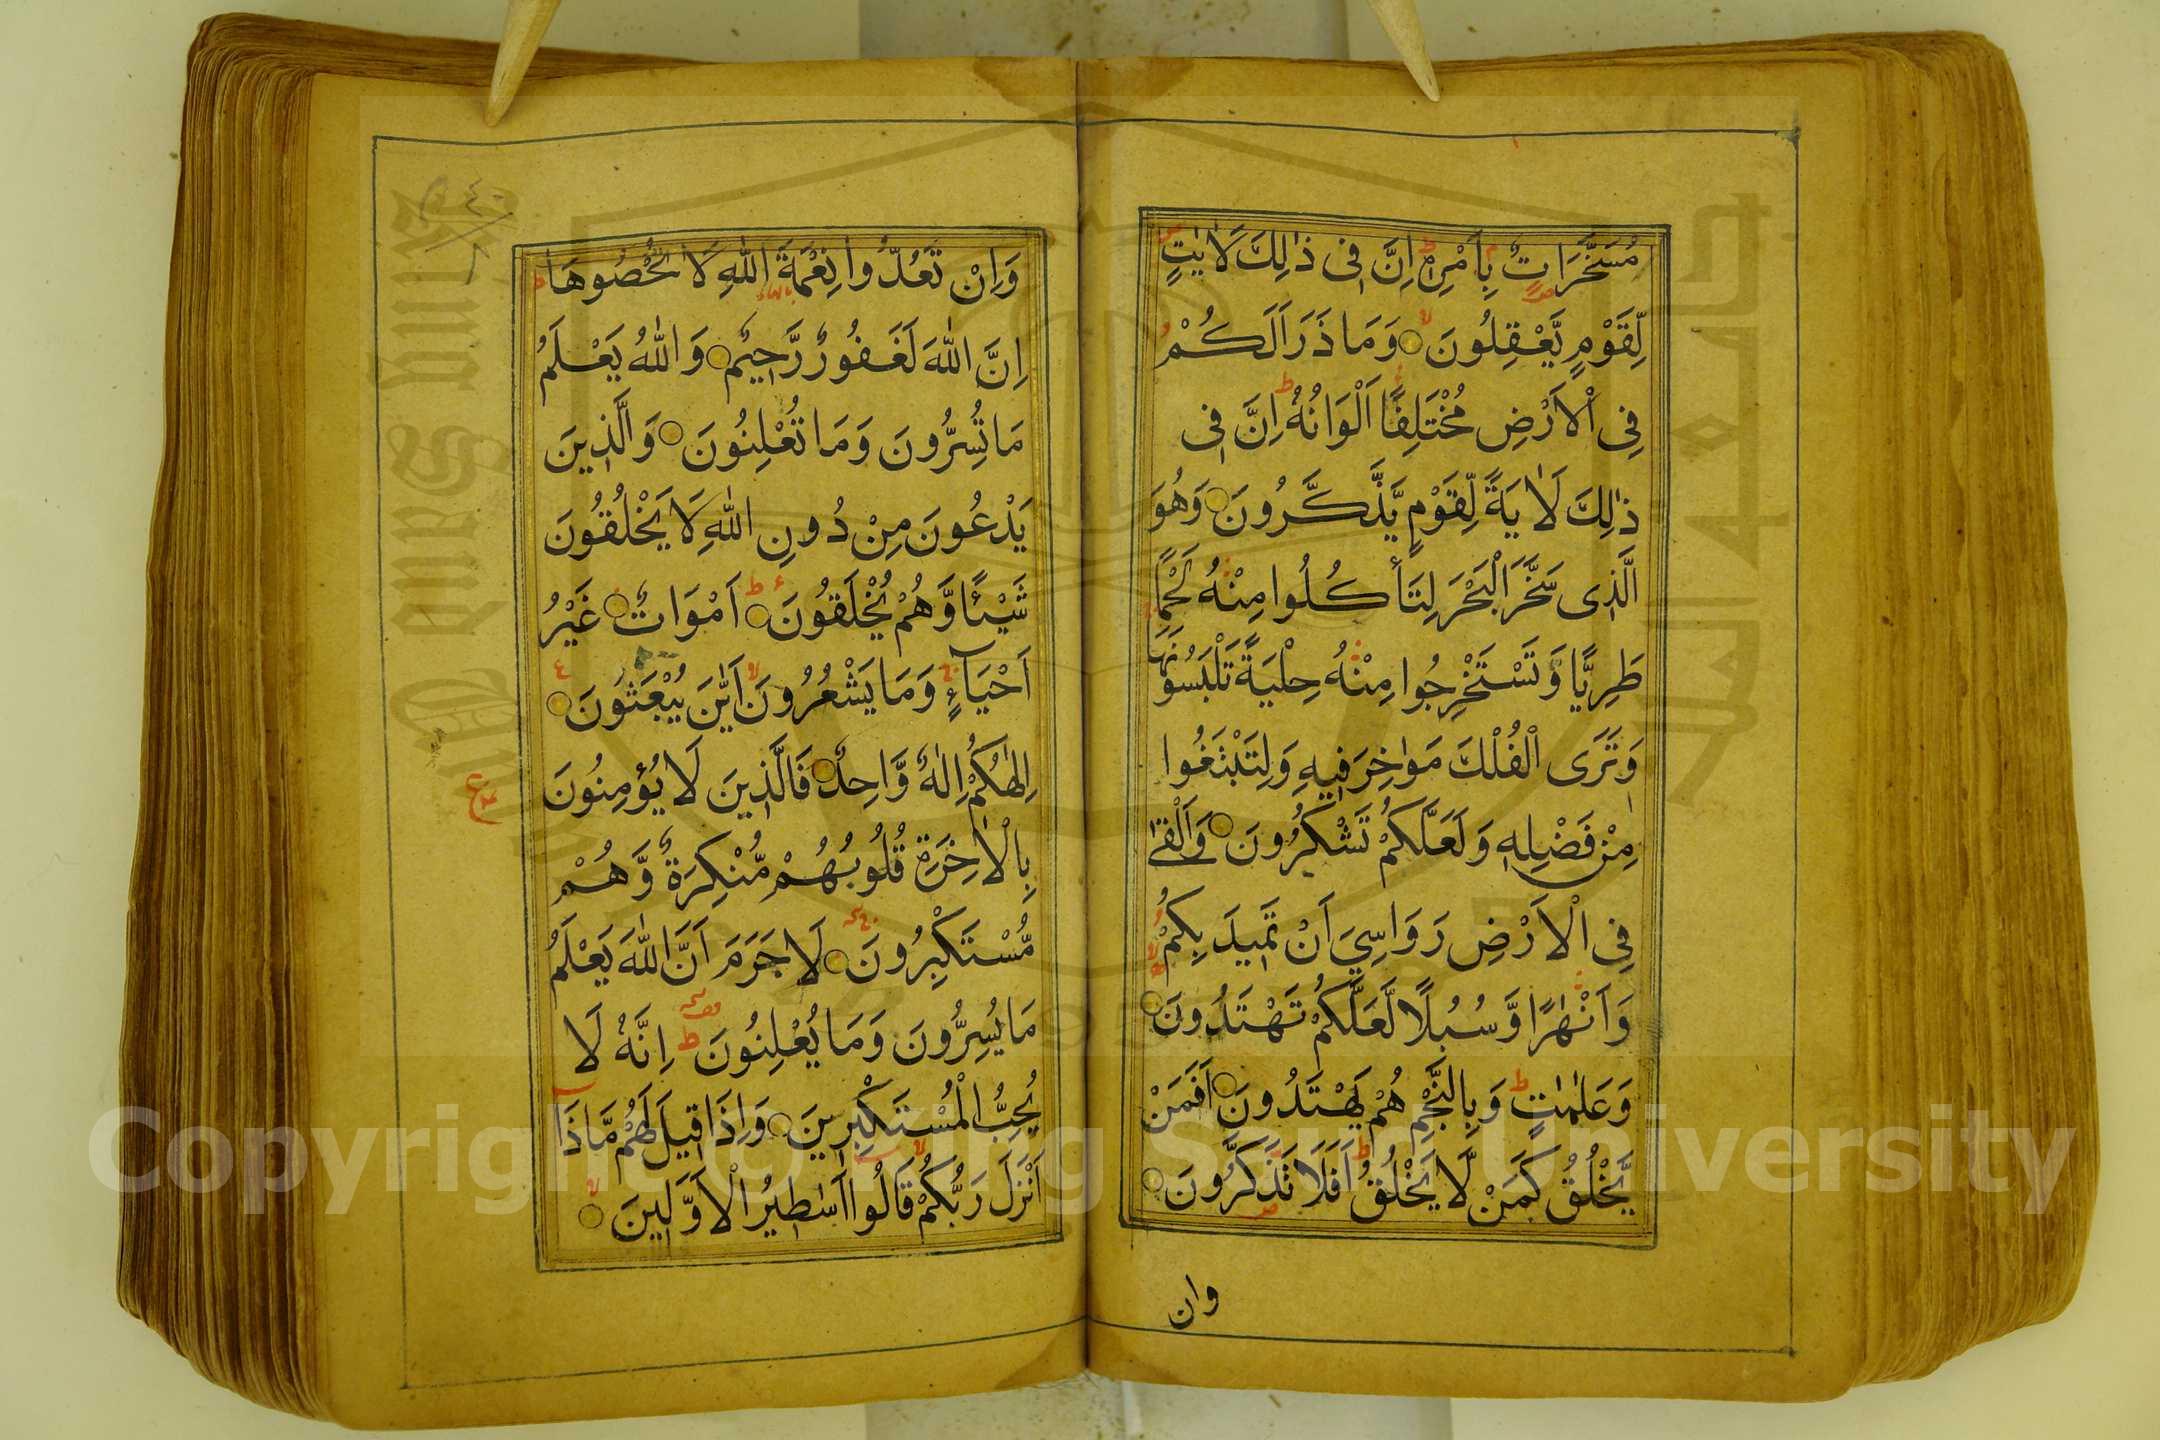 مُسَخَّرَاتٌ بِاَمْرِهٖ اِنَّ فِی ذٰلِكَ لَاٰیٰتٍ
لِّقَوْمٍ یَّعْقِلُونَ وَمَا ذَرَاَ لَكُمْ
فِی الْاَرْضِ مُخْتَلِفًا اَلْوَانُهُ اِنَّ فِی
ذٰلِكَ لَاٰیَةً لِّقَوْمٍ یَّذَّكَّرُونَ وَهُوَ
الَّذِی سَخَّرَ الْبَحْرَ لِتَأْكُلُوا مِنْهُ لَحْمًا
طَرِیًّا وَّتَسْتَخْرِجُوا مِنْهُ حِلْیَةً تَلْبَسُونَهَا
وَتَرَی الْفُلْكَ مَوَاخِرَ فِیهِ وَلِتَبْتَغُوا
مِنْ فَضْلِهٖ وَلَعَلَّكُمْ تَشْكُرُونَ وَاَلْقٰی
فِی الْاَرْضِ رَوَاسِیَ اَنْ تَمِیدَ بِكُمْ
وَاَنْهٰرًا وَّسُبُلًا لَّعَلَّكُمْ تَهْتَدُونَ
وَعَلٰمٰتٍ وَبِالنَّجْمِ هُمْ یَهْتَدُونَ اَفَمَنْ
یَّخْلُقُ كَمَنْ لَّا یَخْلُقُ اَفَلَا تَذَكَّرُونَ
وان
وَاِنْ تَعُدُّوا نِعْمَةَ اللّٰهِ لَا تُحْصُوهَا
اِنَّ اللّٰهَ لَغَفُورٌ رَّحِیمٌ وَاللّٰهُ یَعْلَمُ
مَا تُسِرُّونَ وَمَا تُعْلِنُونَ وَالَّذِینَ
یَدْعُونَ مِنْ دُونِ اللّٰهِ لَا یَخْلُقُونَ
شَیْئًا وَّهُمْ یُخْلَقُونَ اَمْوَاتٌ غَیْرُ
اَحْیَآءٍ وَمَا یَشْعُرُونَ اَیَّانَ یُبْعَثُونَ
اِلٰهُكُمْ اِلٰهٌ وَّاحِدٌ فَالَّذِینَ لَا یُؤْمِنُونَ
بِالْاٰخِرَةِ قُلُوبُهُمْ مُّنْكِرَةٌ وَّهُمْ
مُّسْتَكْبِرُونَ لَا جَرَمَ اَنَّ اللّٰهَ یَعْلَمُ
مَا یُسِرُّونَ وَمَا یُعْلِنُونَ اِنَّهُ لَا
یُحِبُّ الْمُسْتَكْبِرِینَ وَاِذَا قِیلَ لَهُمْ مَّاذَا
اَنْزَلَ رَبُّكُمْ قَالُوا اَسٰطِیرُ الْاَوَّلِینَ
Copyright © King Saud University